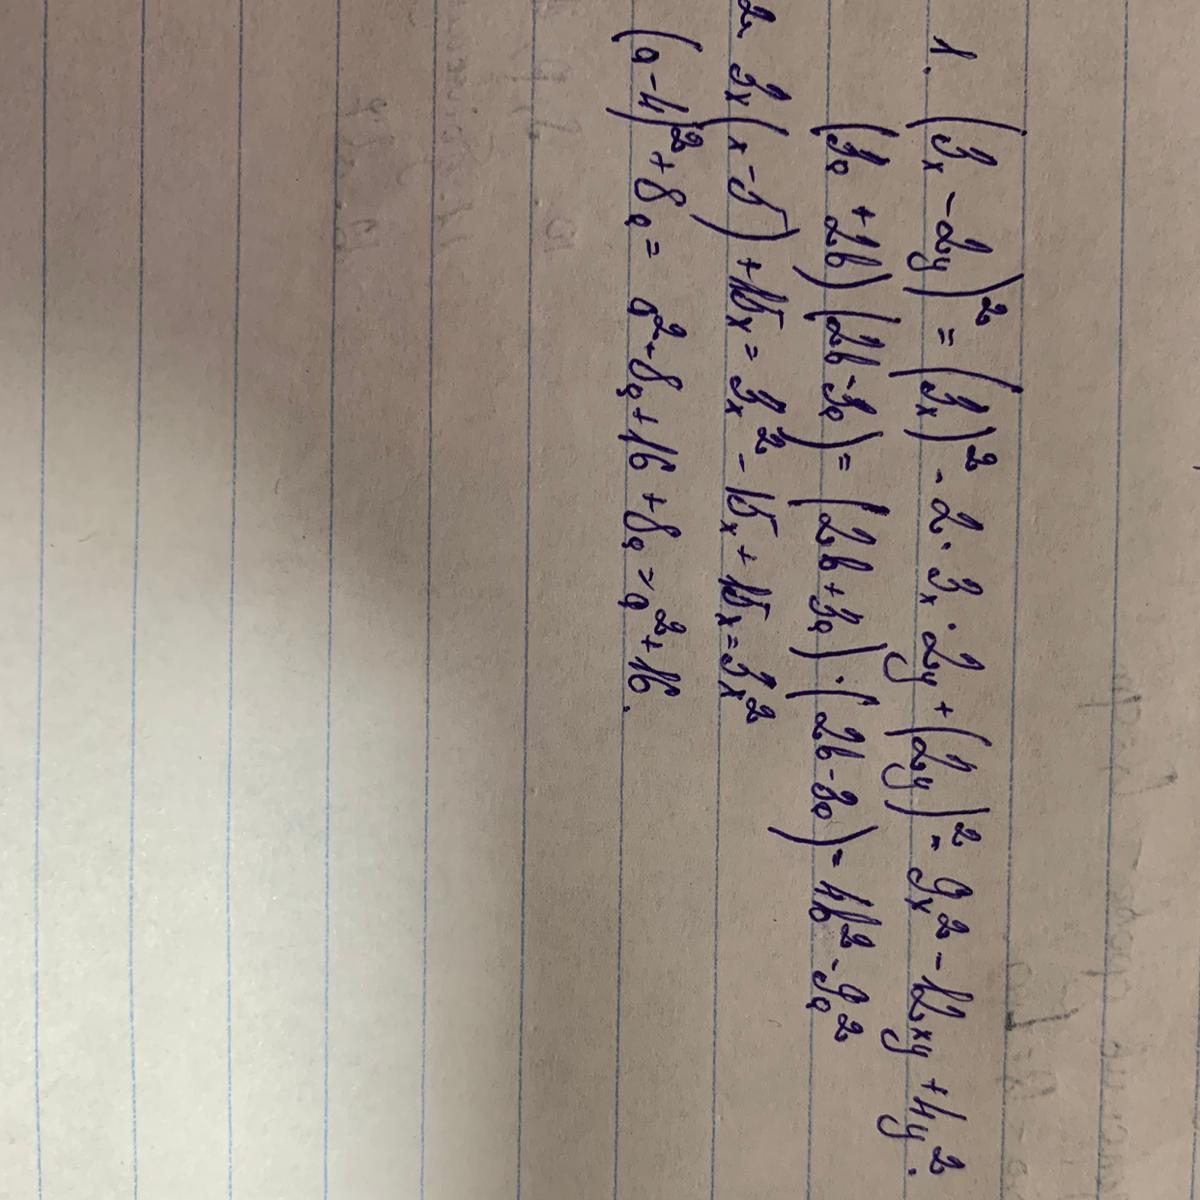 1. (3x - 2y)² = (3x)² - 2 · 3x · 2y + (2y)² = 9x² - 12xy + 4y².
(3a + 2b) (2b - 3a) = (2b + 3a) · (2b - 3a) = 4b² - 9a²
2. 3x (x - 5) + 15x = 3x² - 15x + 15x = 3x²
(a - 4)² + 8a = a² - 8a + 16 + 8a = a² + 16.